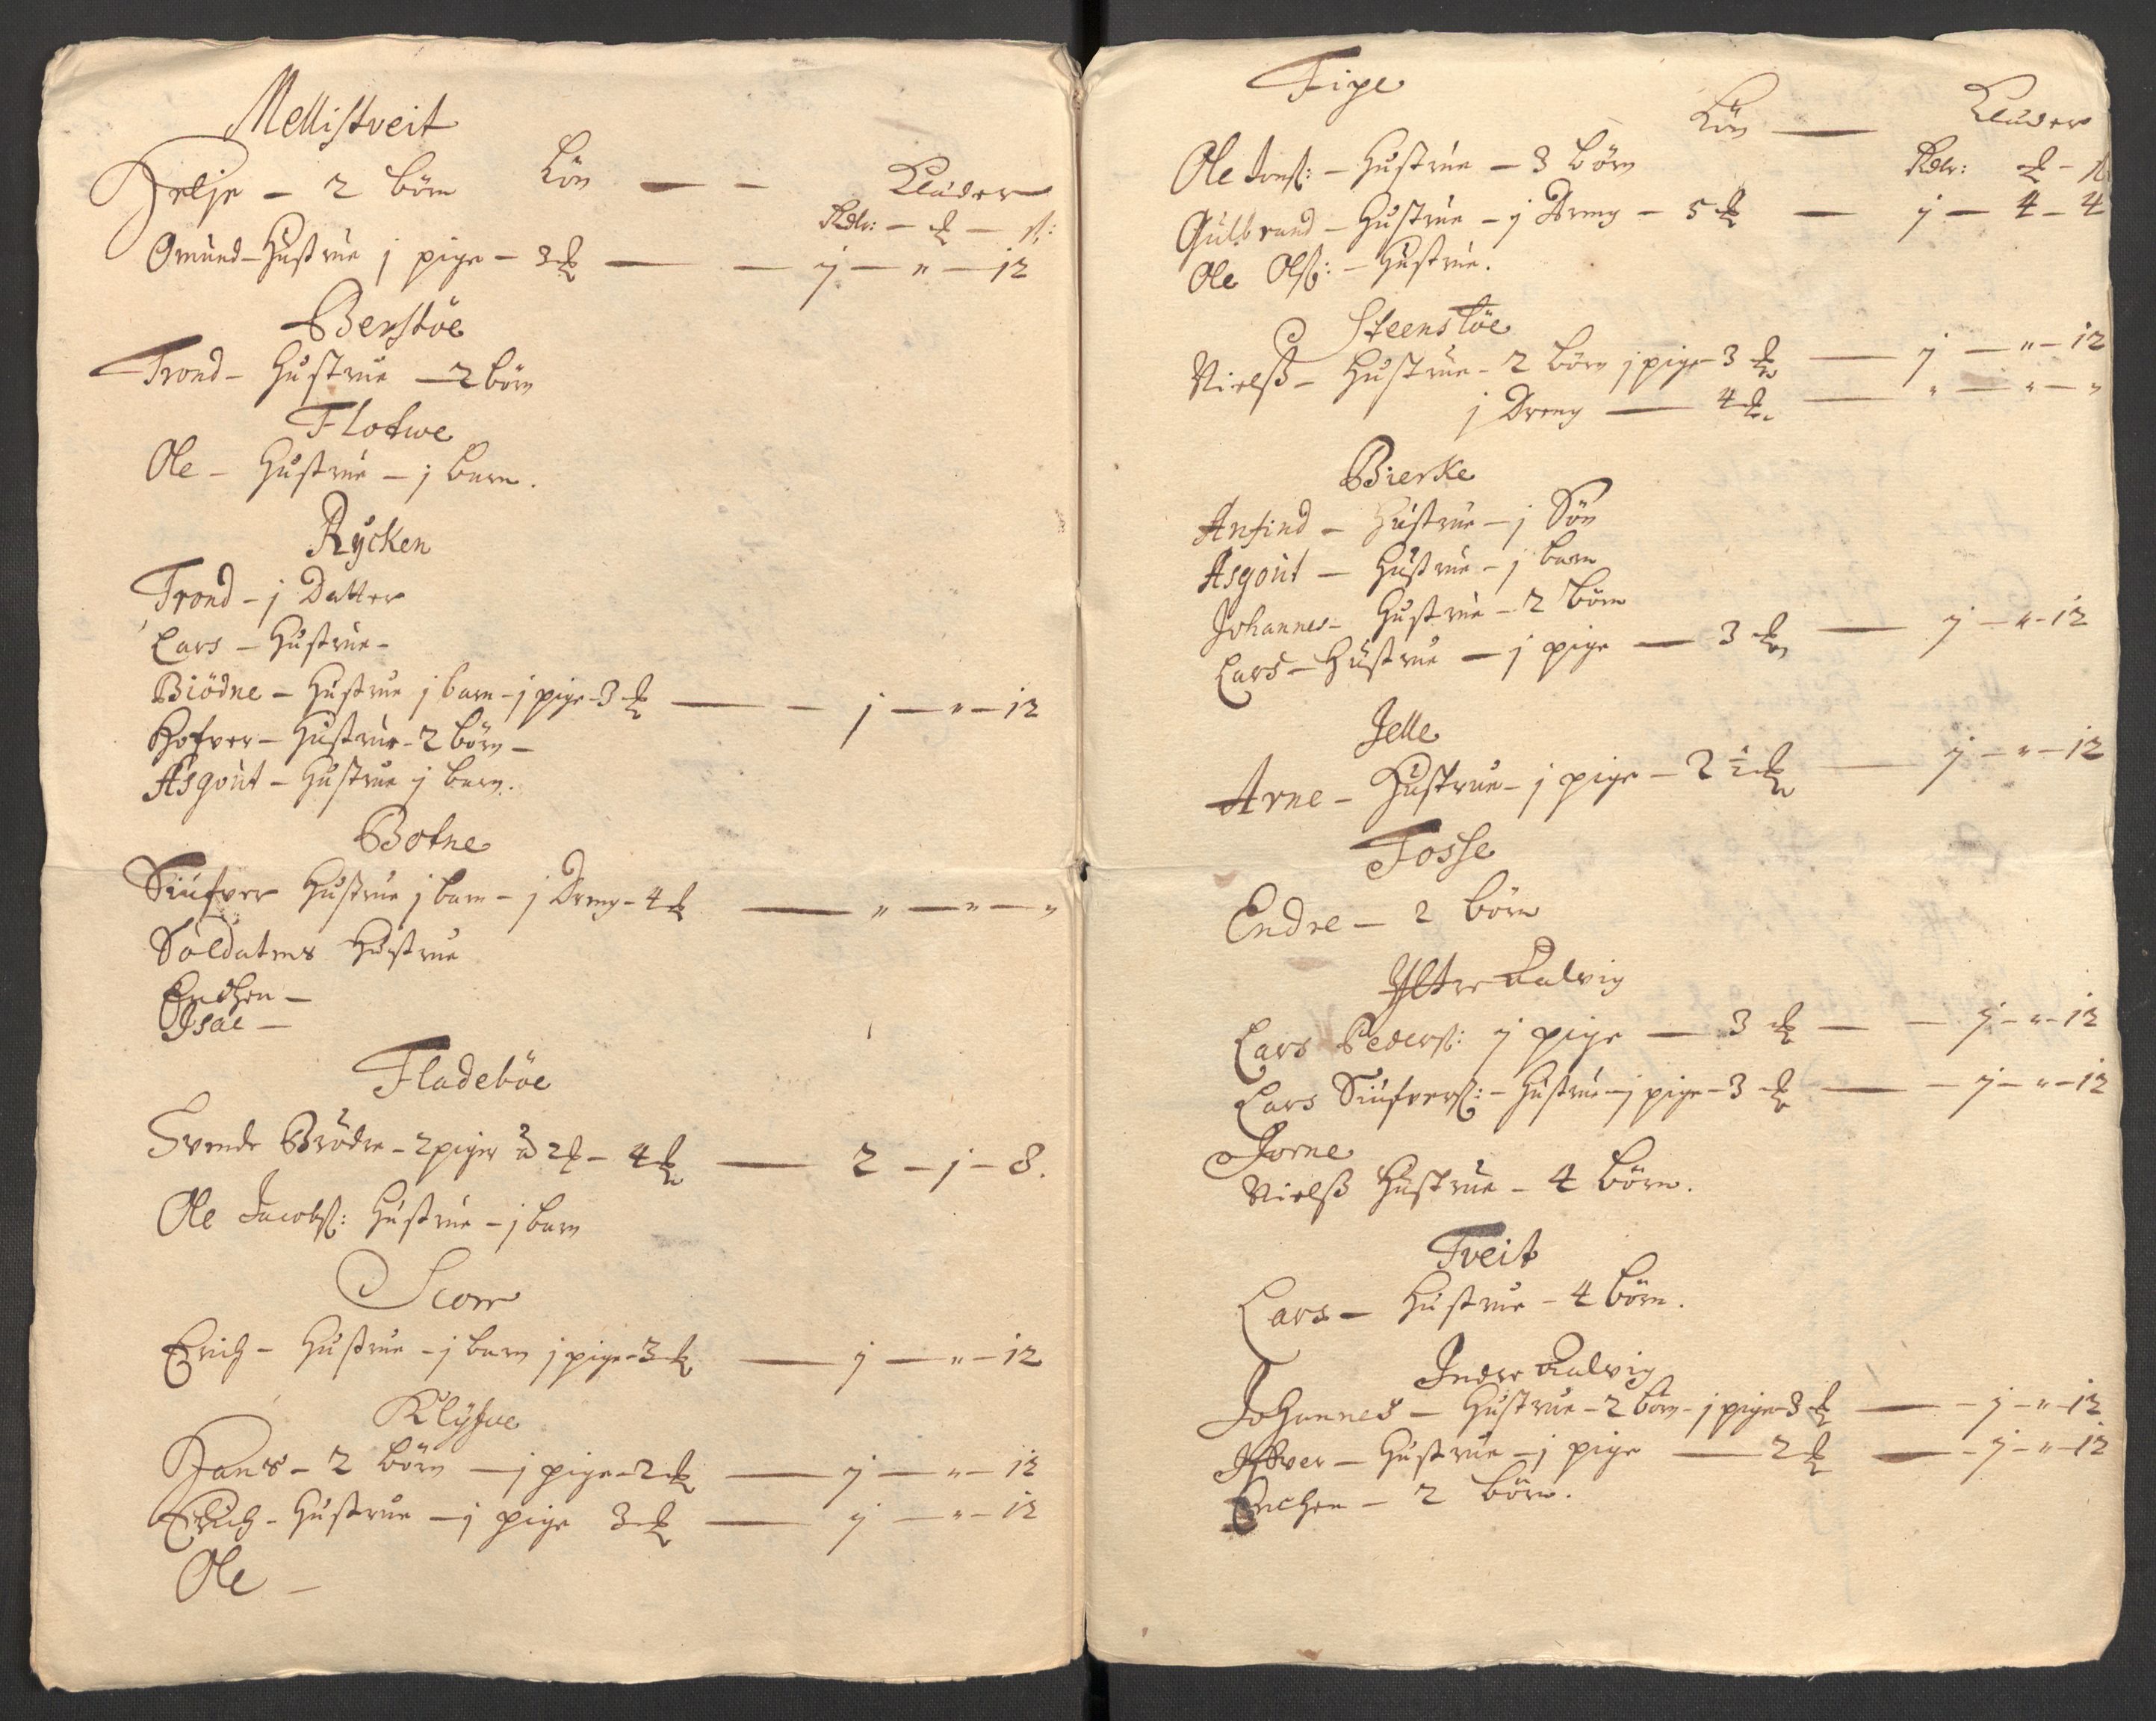 Mellistveit
Helje – 2 börn Lön — – Klæder
Rdlr: – ℔ – ß:
Omund – Hustrue j pige – 3 ℔ — – j – " – 12
Berstöe
Trond – Hustrue – 2 börn
Flotwe
Ole – Hustrue – j barn.
Rycken
Trond – j Datter
Lars – Hustrue –
Biödne – Hustrue j barn – j pige – 3 ℔ — – j – " – 12
Hofver – Hustrue – 2 börn –
Asgout – Hustrue j barn.
Botne
Siufver Hustrue j barn – j Dreng – 4 ℔ — " – " – "
Soldatens Hustrue
Enchen –
Isac –
Fladeböe
Svende Brödre – 2 piger à 2 ℔ – 4 ℔ — 2 – j – 8.
Ole Jacobß: Hustrue – j barn
Scorr
Erich – Hustrue – j barn j pige – 3 ℔ — j – " – 12
Klyfue
Hans – 2 börn – j pige – 2 ℔ — j – " – 12
Erich – Hustrue – j pige 3 ℔ — j – " – 12
Ole –
Fipe
Lön — Klæder
Ole Jonß: – Hustrue – 3 börn Rdlr: ℔ – ß
Gulbrand – Hustrue – j Dreng – 5 ℔ — j – 4 – 4
Ole Olß: – Hustrue.
Steenstöe
Nielß – Hustrue – 2 börn j pige – 3 ℔ — j – " – 12
j Dreng — 4 ℔ — " – " – "
Bierke
Anfind – Hustrue – j Sön
Asgout – Hustrue – j barn
Johannes – Hustrue – 2 börn
Lars – Hustrue – j pige — 3 ℔ — j – " – 12
Jelle
Arne – Hustrue – j pige – 2 ½ ℔ — j – " – 12
Fosse
Endre – 2 börn
Yttre Aalvig
Lars Pederß: j pige — 3 ℔ — – j – " – 12
Lars Siufverß: – Hustrue – j pige – 3 ℔ — – j – " – 12
Jorne
Nielß Hustrue – 4 börn.
Tveit
Lars – Hustrue – 4 börn.
Indre Aalvig
Johannes – Hustrue – 2 börn – j pige – 3 ℔ — – j – " – 12
Ifver – Hustrue – j pige — 2 ℔ — – j – " – 12
Enchen – 2 börn.